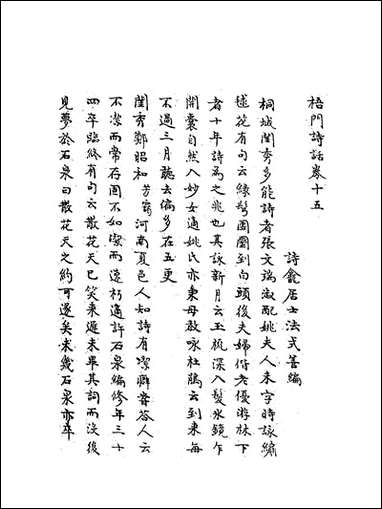 梧門詩話卷十五
詩龕居士法式善編
桐城閨秀多能詩者張文端淑配姚夫人未字時詠繡
毬花有句云綠鬢團圞到白頭後夫婦偕老優游林下
者十年詩為之兆也其詠新月云玉梳深入髮水鏡乍
開奩自然入妙女適姚氏亦秉母教咏杜鵑云到來每
不過三月聽去偏多在五更
閨秀鄭昭和芳窩河南夏邑人知詩有潔癖嘗答人云
不潔而常存固不如潔而速朽適許石泉編修年三十
四卒臨終有句云散花天已笑來遲未畢其詞而沒後
見夢於石泉曰散花天之約可遂矣未幾石泉亦卒